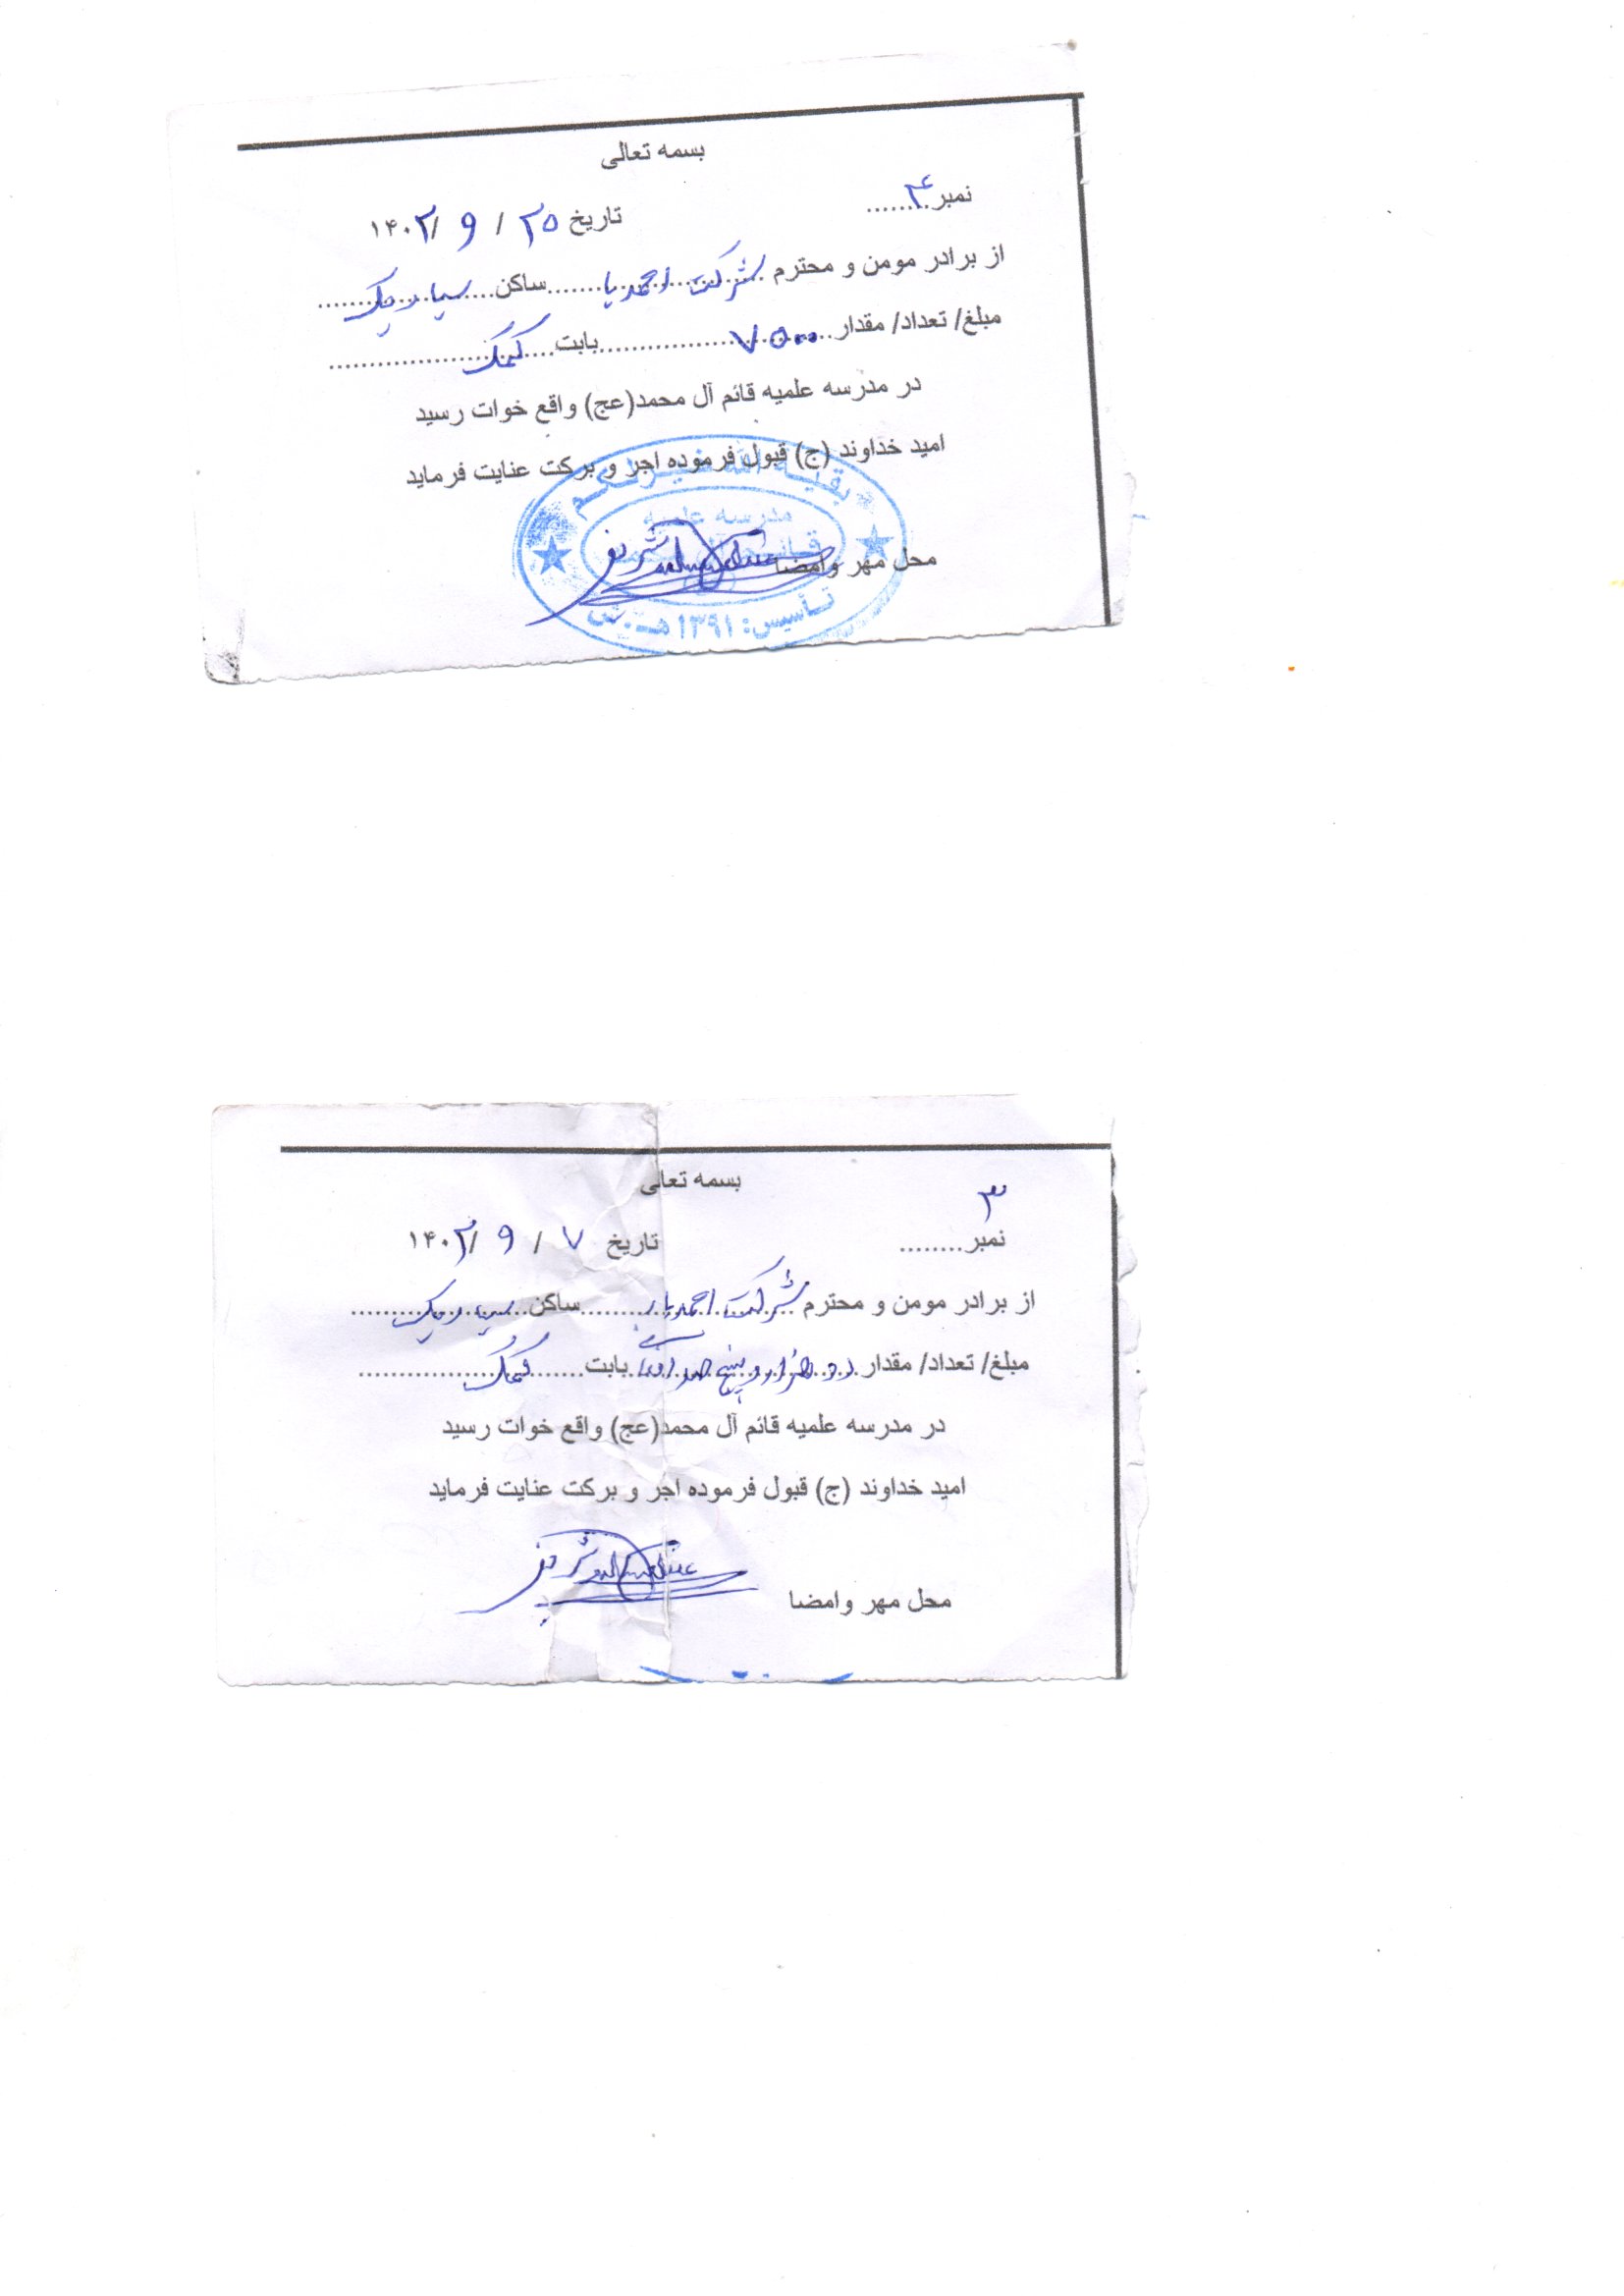 بسمه تعالی
نمبر ۴........
تاریخ ۲۵ / ۹ / ۱۴۰۲
از برادر مومن و محترم شرکت احمدیا ساکن سیاه ریگ
مبلغ/ تعداد/ مقدار ۷۵۰۰ بابت کمک
در مدرسه علمیه قائم آل محمد(عج) واقع خوات رسید
امید خداوند (ج) قبول فرموده اجر و برکت عنایت فرماید
بقیة الله خیر لکم
مدرسه علمیه
محل مهر وامضا
تأسیس: ۱۳۹۱ هـ.ش
بسمه تعالی
۳
نمبر........
تاریخ ۷ / ۹ / ۱۴۰۲
از برادر مومن و محترم شرکت احمدیار ساکن
مبلغ/ تعداد/ مقدار دو هزار و پنج صد افغانی بابت کمک
در مدرسه علمیه قائم آل محمد(عج) واقع خوات رسید
امید خداوند (ج) قبول فرموده اجر و برکت عنایت فرماید
محل مهر وامضا